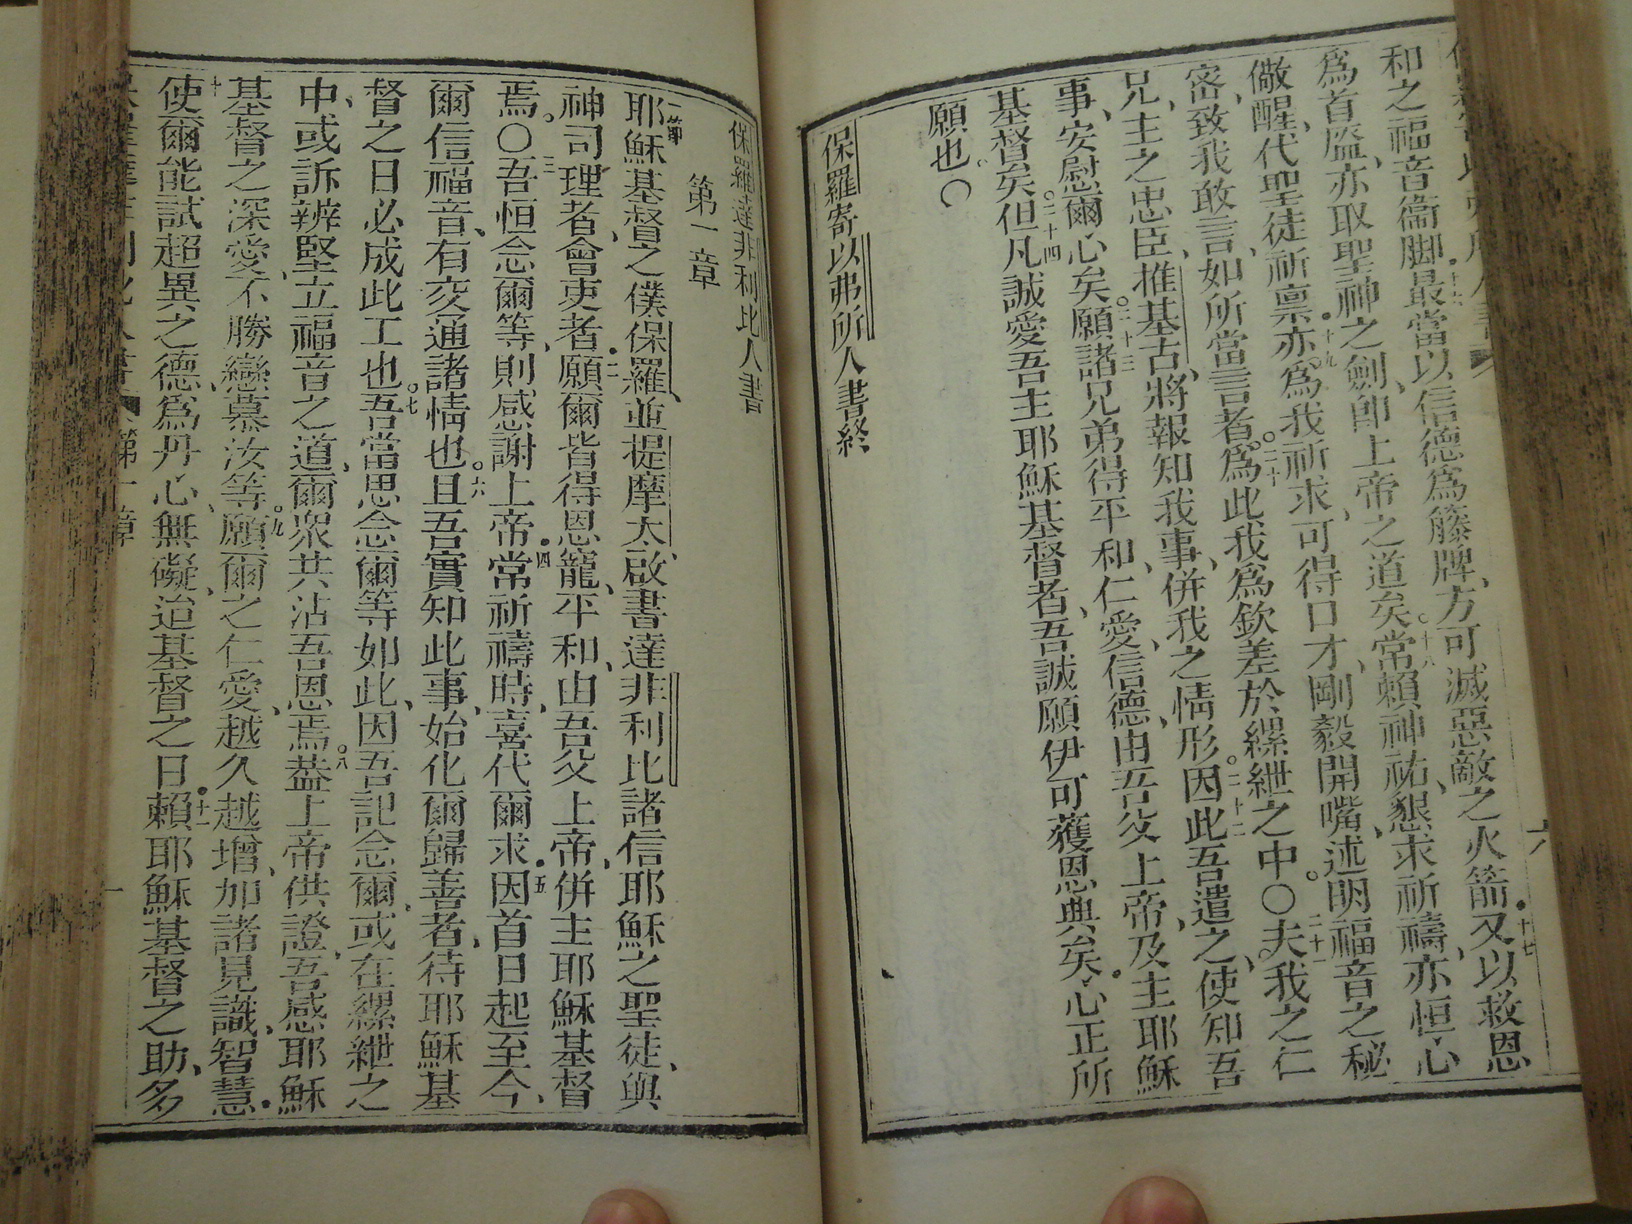 和之福音衞脚最當以信德爲籐牌、方可滅惡敵之火箭十七又以救恩
爲首盔、亦取聖神之劍、卽上帝之道矣。十八常賴神祐、懇求祈禱、亦恒心
儆醒、代聖徒祈禀。十九亦爲我祈求、可得口才、剛毅開嘴、述明福音之秘
密、致我敢言、如所當言者。二十爲此我爲欽差於縲絏之中。〇二十一夫我之仁
兄、主之忠臣、推基古、將報知我事、併我之情形。二十二因此吾遣之、使知吾
事、安慰爾心矣。二十三願諸兄弟得平和、仁愛、信德、由吾父上帝、及主耶穌
基督矣。二十四但凡誠愛吾主耶穌基督者、吾誠願伊可獲恩典矣。心正所
願也。〇
保羅寄以弗所人書終
六
保羅達非利比人書
第一章
一節耶穌基督之僕保羅、並提摩太、啟書達非利比諸信耶穌之聖徒、與
神司理者、會吏者二願爾皆得恩寵、平和、由吾父上帝、併主耶穌基督
焉。〇三吾恒念爾等、則感謝上帝四常祈禱時、喜代爾求五因首日起至今、
爾信福音、有交通諸情也。六且吾實知此事、始化爾歸善者、待耶穌基
督之日必成此工也。七吾當思念爾等如此、因吾記念爾、或在縲絏之
中、或訴辨堅立福音之道、爾衆共沾吾恩焉。八葢上帝供證、吾感耶穌
基督之深愛、不勝戀慕汝等。九願爾之仁愛、越久越增、加諸見識、智慧
十使爾能試超異之德、爲丹心無礙、迨基督之日十一賴耶穌基督之助、多
一